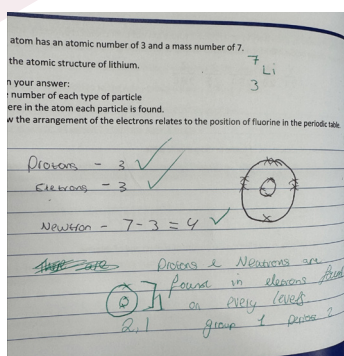 atom has an atomic number of 3 and a mass number of 7.
the atomic structure of lithium.
n your answer:
number of each type of particle
ere in the atom each particle is found.
w the arrangement of the electrons relates to the position of fluorine in the periodic table.
7
Li
3
Protons - 3
Electrons - 3
Newtron - 7-3 = 4
Protons & Neutrons are
found in electrons found
on every levels
2,1 group 1 period 2